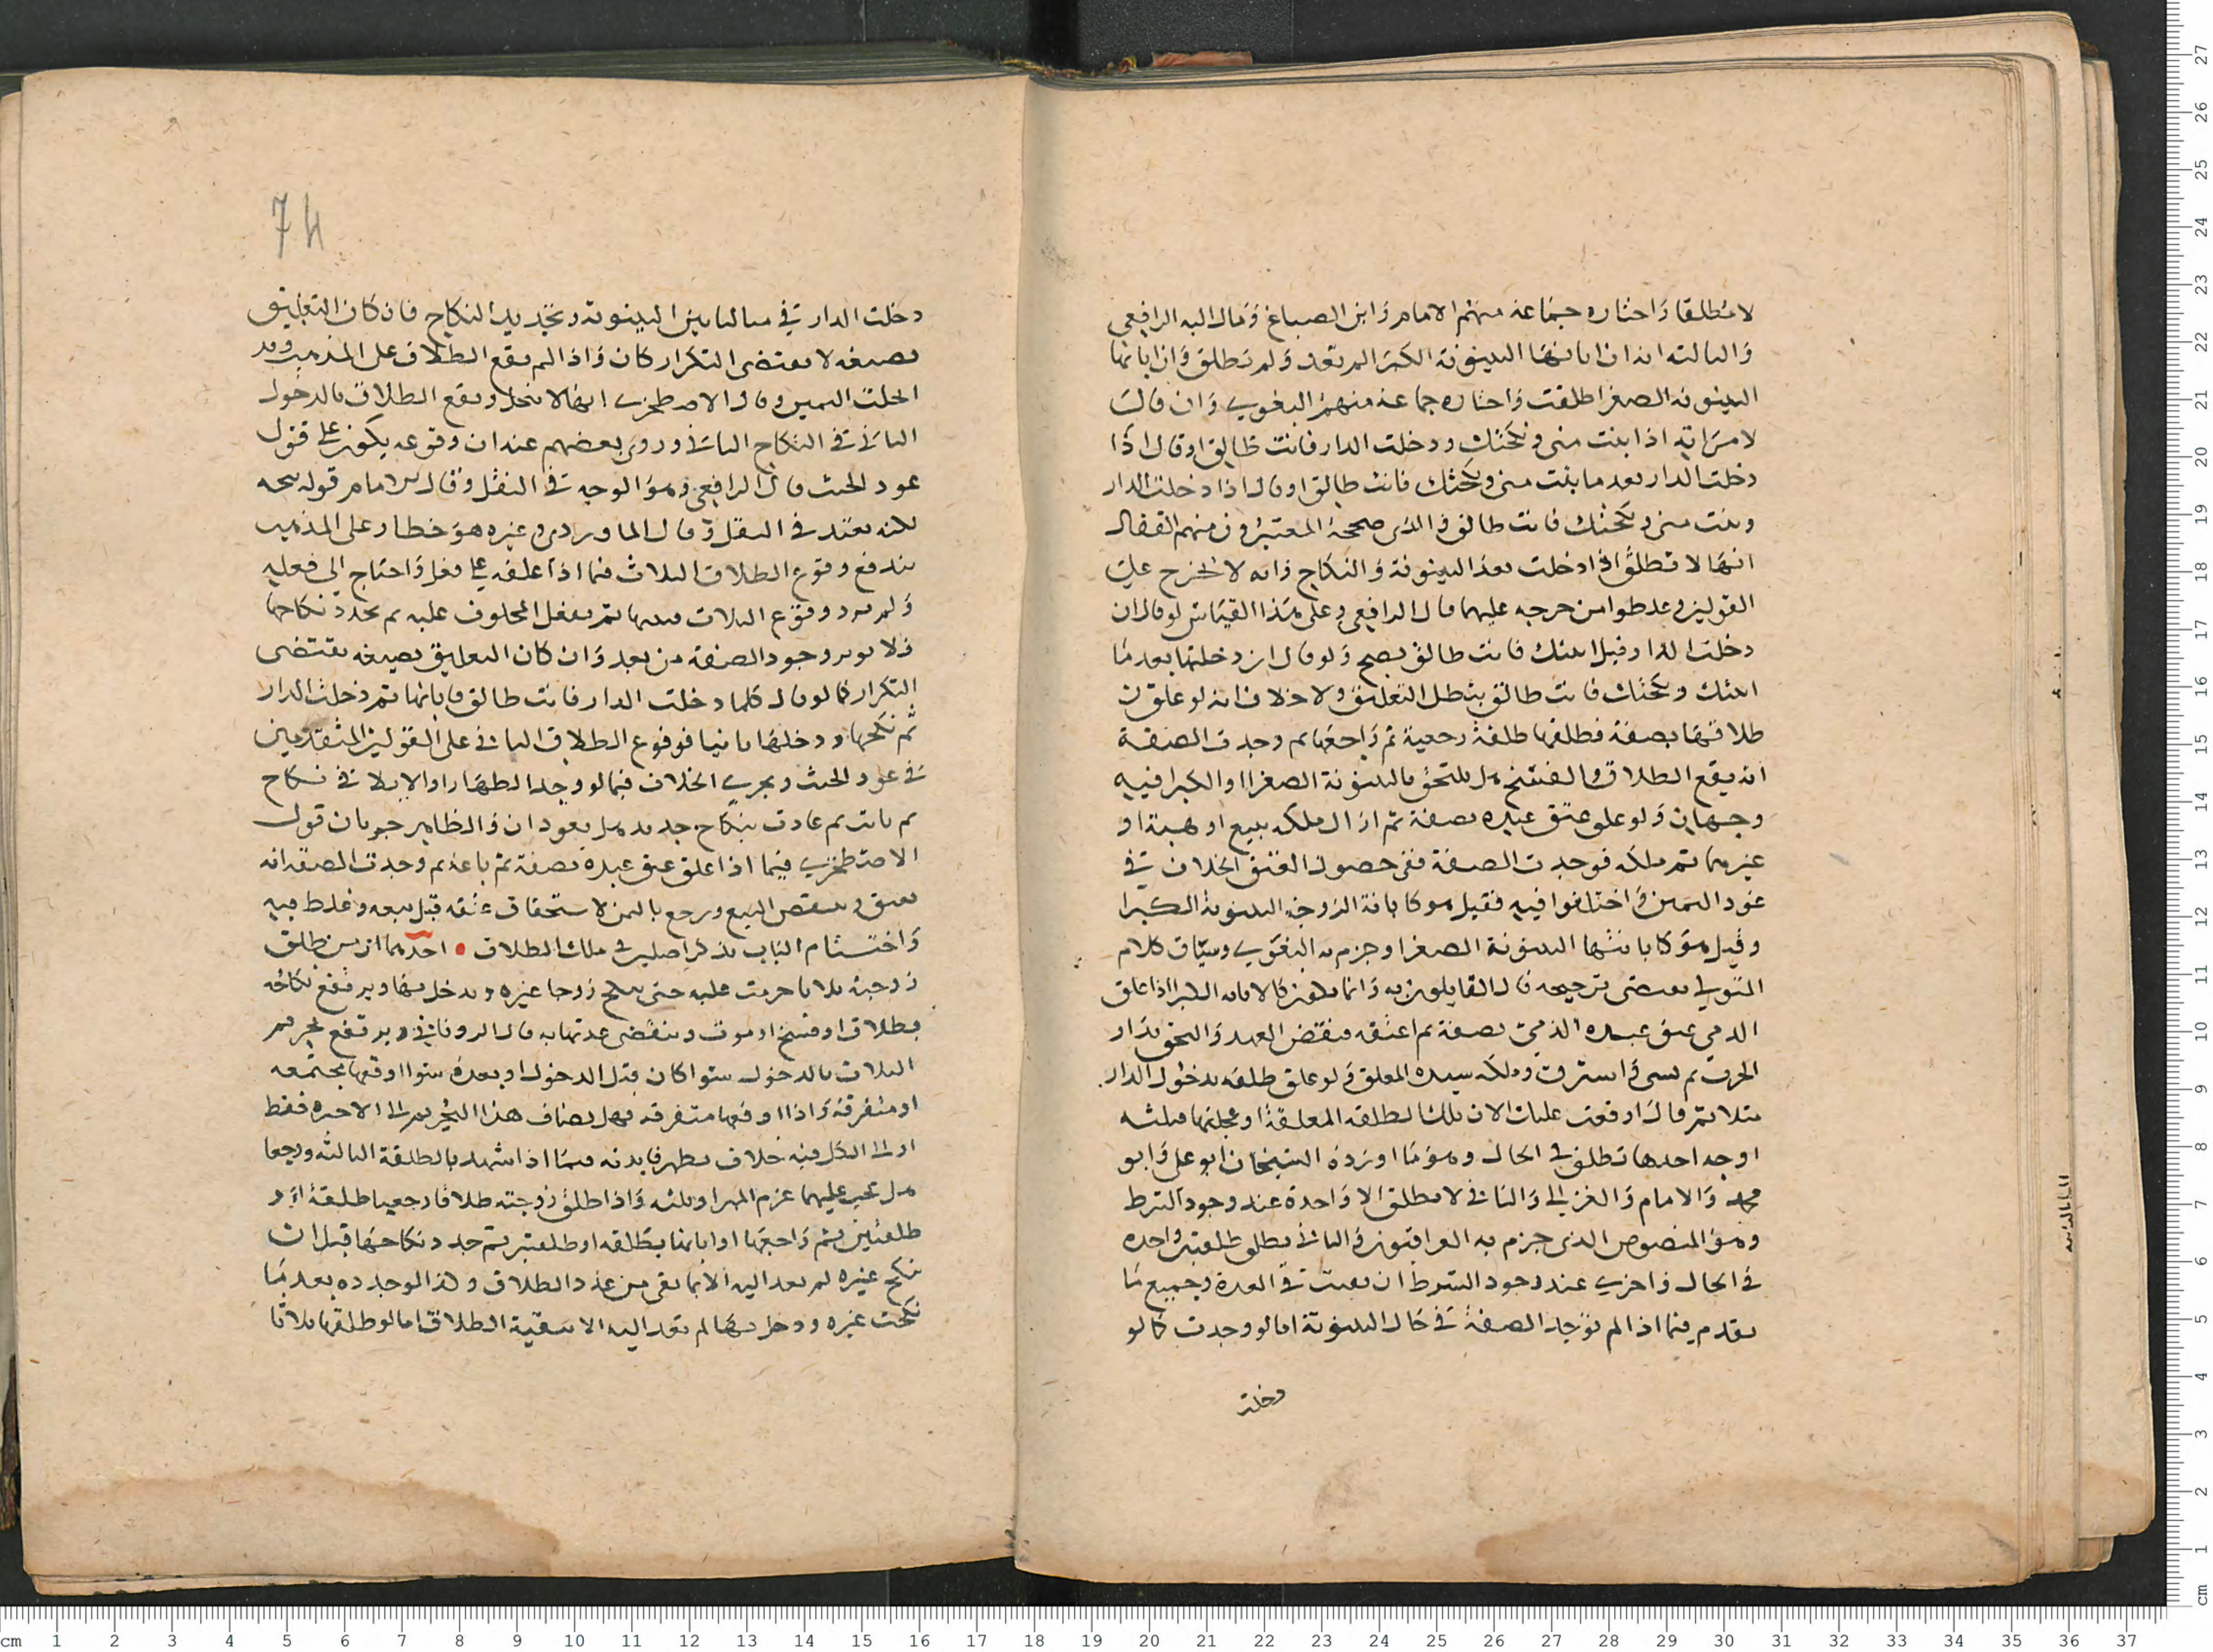 لا مطلقا واختاره جماعة منهم الامام وابن الصباغ ومال اليه الرافعي
والثالثة انه ان ابانها البينونة الكبرى لم تعد ولم تطلق وان ابانها
البينونة الصغرا طلقت واختاره جماعة منهم البغوي وان قال
لامراته اذا بنت مني ونكحتك ودخلت الدار فانت طالق او قال اذا
دخلت الدار بعد ما بنت مني ونكحتك فانت طالق او قال اذا دخلت الدار
وبنت مني ونكحتك فانت طالق فالذي صححه المعتبرون منهم القفال
انها لا تطلق اذا دخلت بعد البينونة والنكاح وانه لا يخرج على
القولين وغلطوا من خرجه عليهما قال الرافعي وعلى هذا القياس لو قال ان
دخلت الدار قبل ابنتك فانت طالق يصح ولو قال ان دخلتها بعد ما
ابنتك ونكحتك فانت طالق بطل التعليق ولا خلاف انه لو علق
طلاقها بصفة فطلقها طلقة رجعية ثم راجعها ثم وجدت الصفة
انه يقع الطلاق والفسخ هل يلتحق بالبينونة الصغرا او الكبرا فيه
وجهان ولو علق عتق عبده بصفة ثم ازال ملكه ببيع او هبة او
غيرهما ثم ملكه فوجدت الصفة ففي حصول العتق الخلاف في
عود اليمين واختلفوا فيه فقيل هو كابانة الزوجة البينونة الكبرا
وقيل هو كابانتها البينونة الصغرا وجزم به البغوي وسياق كلام
المتولي يقتضي ترجيحه قال القايلون به وانما يكون كالابانه الكبرا اذا علق
الذمي عتق عبده الذمي بصفة ثم اعتقه فنقض العهد والتحق بدار
الحرب ثم سبي واسترق وملكه سيده المعلق ولو علق طلقه بدخول الدار
مثلا ثم قال اوقعت عليك الان تلك الطلقه المعلقة او عجلتها فثلثه
اوجه احدها تطلق في الحال وهو ما اورده الشيخان ابو علي وابو
محمد والامام والغزالي والثاني لا تطلق الا واحدة عند وجود الشرط
وهو المنصوص الذي جزم به العراقيون والثاني تطلق طلقتين واحده
في الحال واخري عند وجود الشرط ان بقيت في العدة وجميع ما
تقدم فيما اذا لم توجد الصفة في حال البينونة اما لو وجدت كما لو
دخلت
74
دخلت الدار في مسالتنا بين البينونة وتجديد النكاح فان كان التعليق
بصيغه لا تقتضي التكرار كان واذا لم يقع الطلاق على المذهب وقد
انحلت اليمين وقال الاصطخري انها لا تنحل ويقع الطلاق بالدخول
الثاني في النكاح الثاني وروى بعضهم عنه ان وقوعه يكون على قول
عود الحنث قال الرافعي وهو الوجه في النقل وقال الامام قوله متجه
لكنه بعيد في النقل وقال الماوردي وغيره هو خطا وعلى المذهب
يندفع وقوع الطلاق الثلاث فيما اذا علقه على فعل واحتاج الى فعليه
ولم يرد وقوع الثلاث فيبينها ثم يفعل المحلوف عليه ثم يجدد نكاحها
فلا يوثر وجود الصفة من بعد وان كان التعليق بصيغه تقتضي
التكرار كما لو قال كلما دخلت الدار فانت طالق فابانها ثم دخلت الدار
ثم نكحها ودخلتها ثانيا فوقوع الطلاق الثاني على القولين المتقدمين
في عود الحنث ويجري الخلاف فيما لو وجد الظهار او الايلا في نكاح
ثم بانت ثم عادت بنكاح جديد هل يعودان والظاهر جريان قول
الاصطخري فيما اذا علق عتق عبده بصفة ثم باعه ثم وجدت الصفة انه
يعتق وينتقض البيع ويرجع بالثمن لاستحقاق عتقه قبل بيعه وغلط فيه
واختتام الباب بذكر اصلين في ملك الطلاق • احدهما ان من طلق
زوجته ثلاثا حرمت عليه حتى تنكح زوجا غيره ويدخل بها ويرتفع نكاحه
بطلاق او فسخ او موت وتنقضي عدتها به قال الروياني ويرتفع تحريم
الثلاث بالدخول سوا كان قبل الدخول او بعده سوا اوقعها مجتمعه
او متفرقة واذا اوقعها متفرقه فهل يضاف هذا التحريم الى الاخيره فقط
او الى الكل فيه خلاف يظهر فايدته فيما اذا شهد بالطلقة الثالثه ورجعا
هل يجب عليهما غرم المهر او ثلثه واذا طلق زوجته طلاقا رجعيا طلقة او
طلقتين ثم راجعها او ابانها بطلقه او طلقتين ثم جدد نكاحها قبل ان
تنكح غيره لم تعد اليه الا بما بقي من عدد الطلاق وكذا لو جدده بعد ما
نكحت غيره ودخل بها لم تعد اليه الا ببقية الطلاق اما لو طلقها ثلاثا